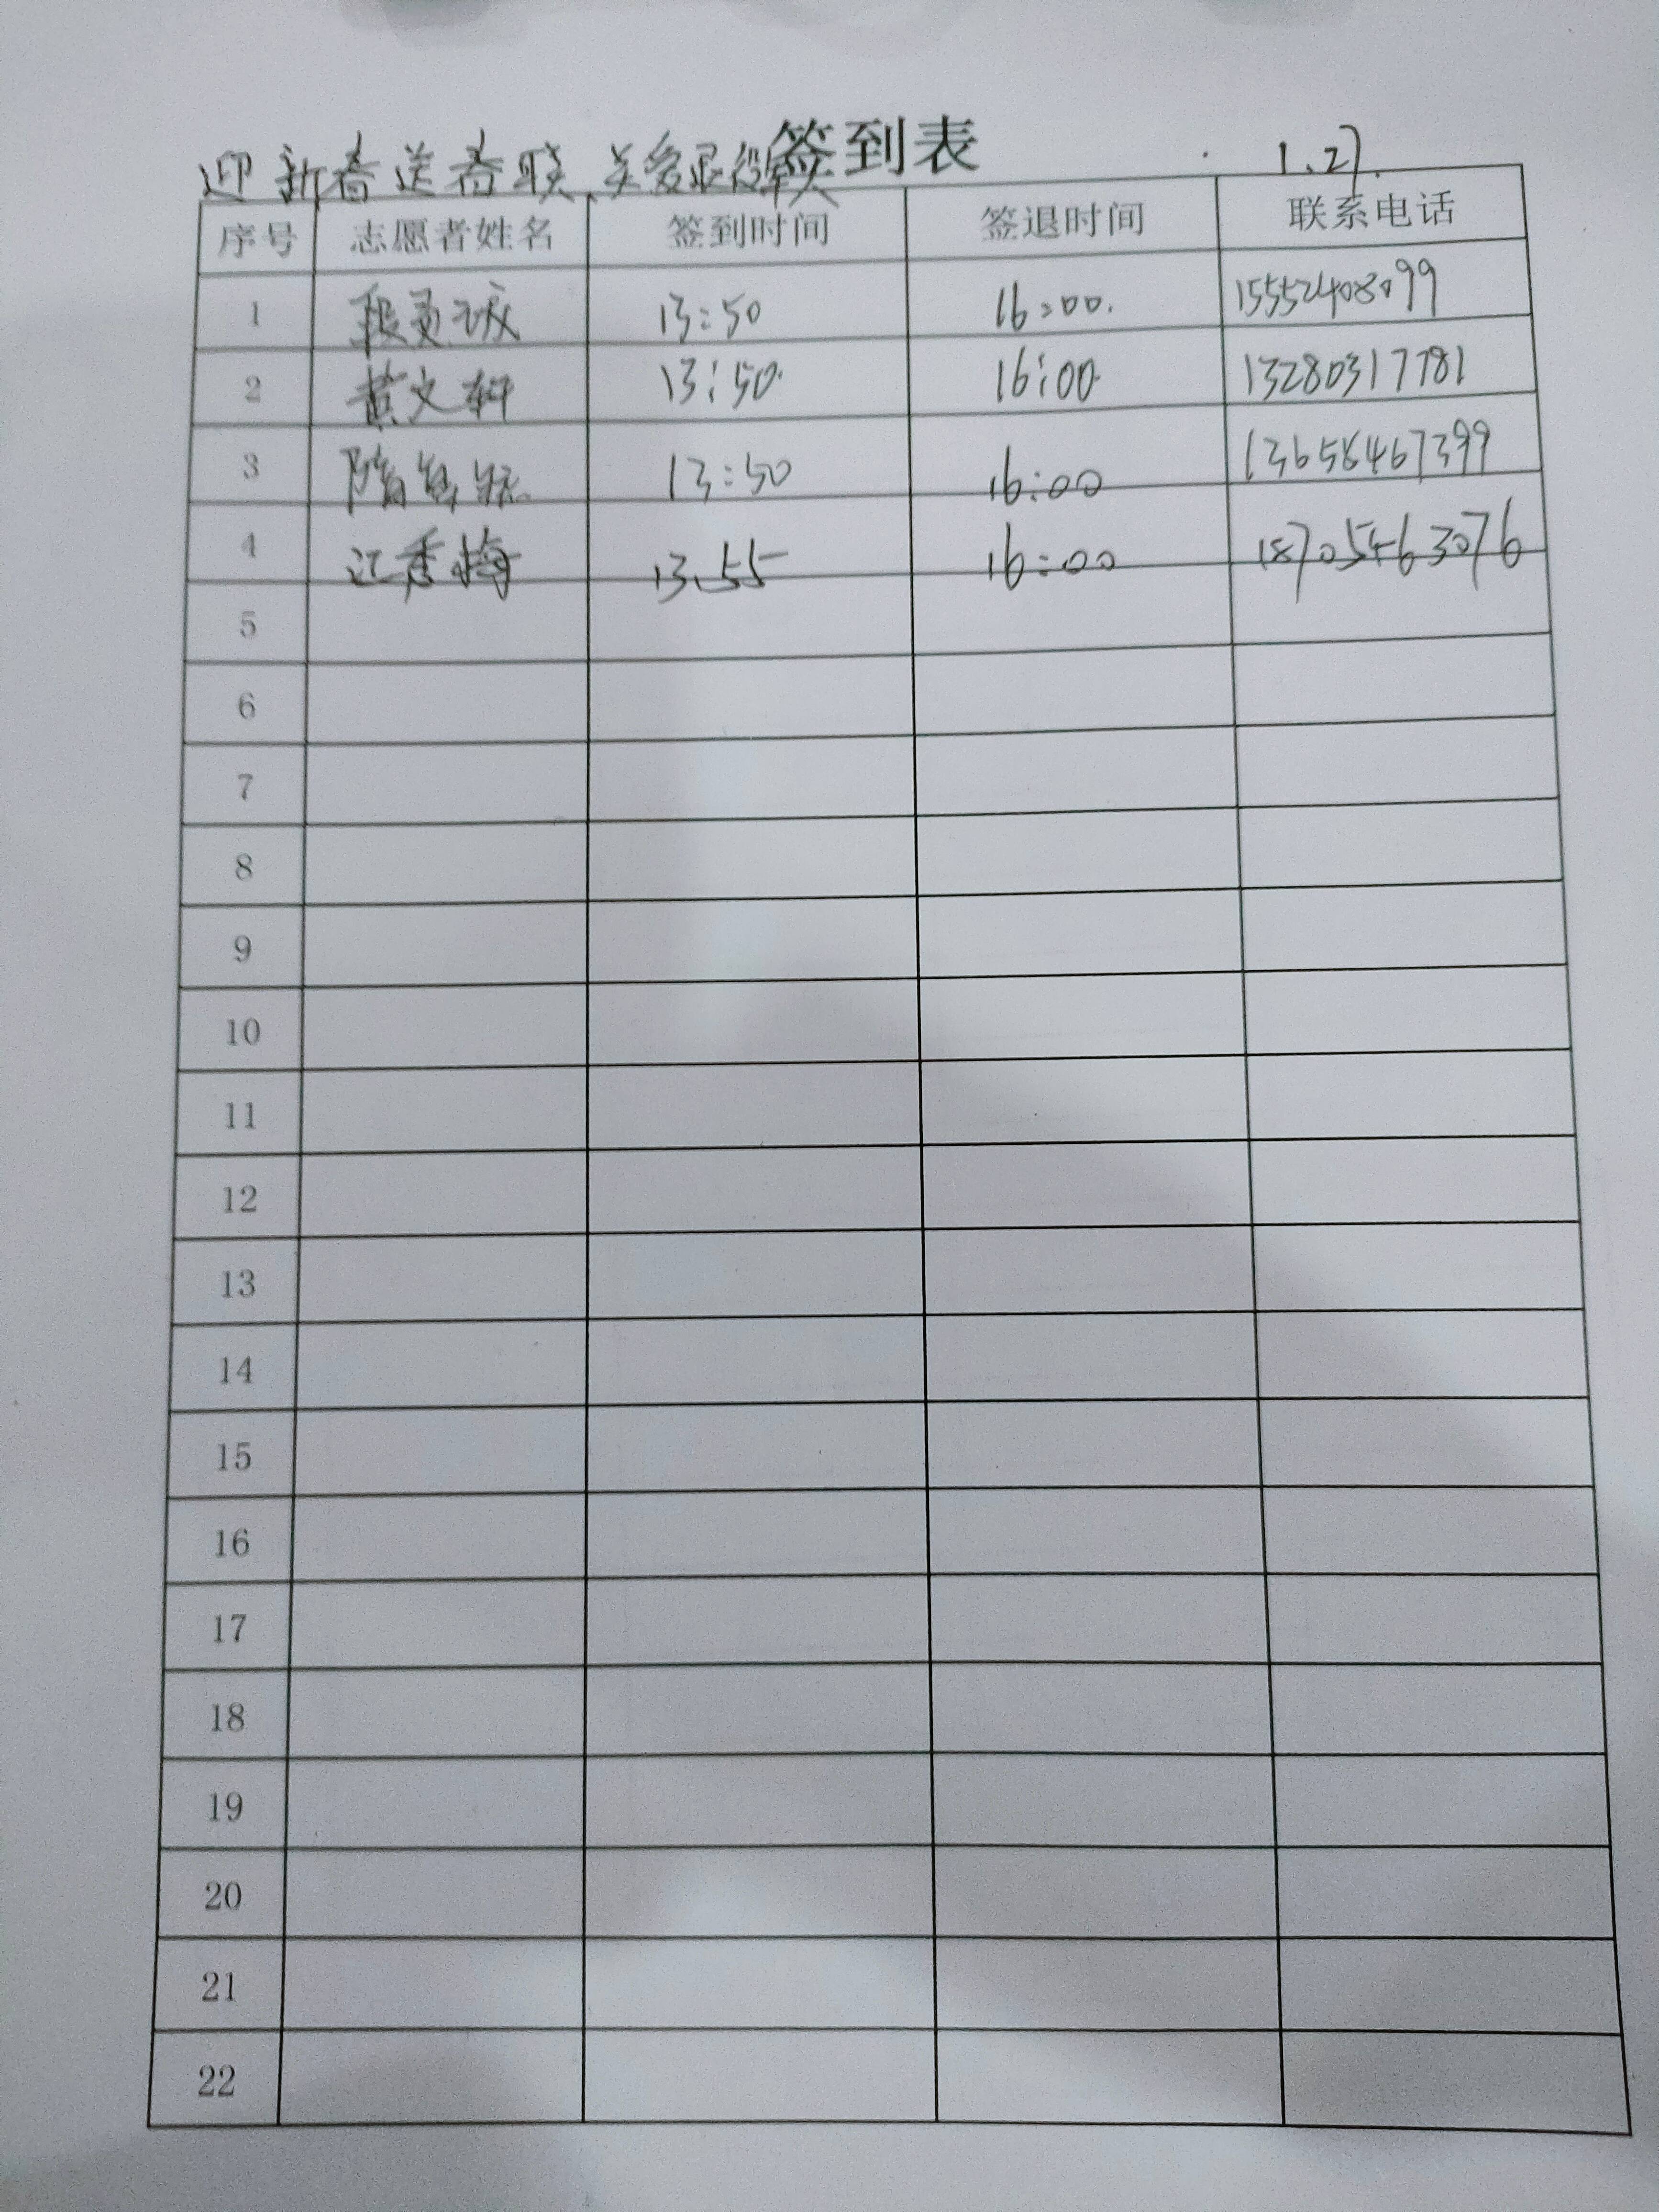 签到表
迎新春送春联、关爱退役军人 1.27.
序号 志愿者姓名 签到时间 签退时间 联系电话
1 13:50 16:00. 15552408099
2 黄文轩 13:50. 16:00. 13280317781
3 13:50 16:00 13656467399
4 江秀梅 13.55 16:00 18705463076
5
6
7
8
9
10
11
12
13
14
15
16
17
18
19
20
21
22